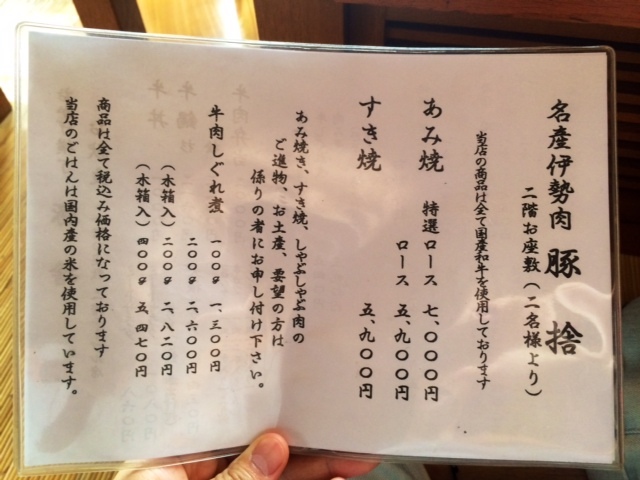 名産伊勢肉 豚捨
二階お座敷(二名様より)
当店の商品は全て国産和牛を使用しております
あみ焼 特選ロース 七、〇〇〇円
ロース 五、九〇〇円
すき焼 五、九〇〇円
あみ焼き、すき焼、しゃぶしゃぶ肉の
ご進物、お土産、要望の方は
係りの者にお申し付け下さい。
牛肉しぐれ煮 一〇〇g 一、三〇〇円
二〇〇g 二、六〇〇円
(木箱入)二〇〇g 二、八二〇円
(木箱入)四〇〇g 五、四七〇円
商品は全て税込み価格になっております
当店のごはんは国内産の米を使用しています。